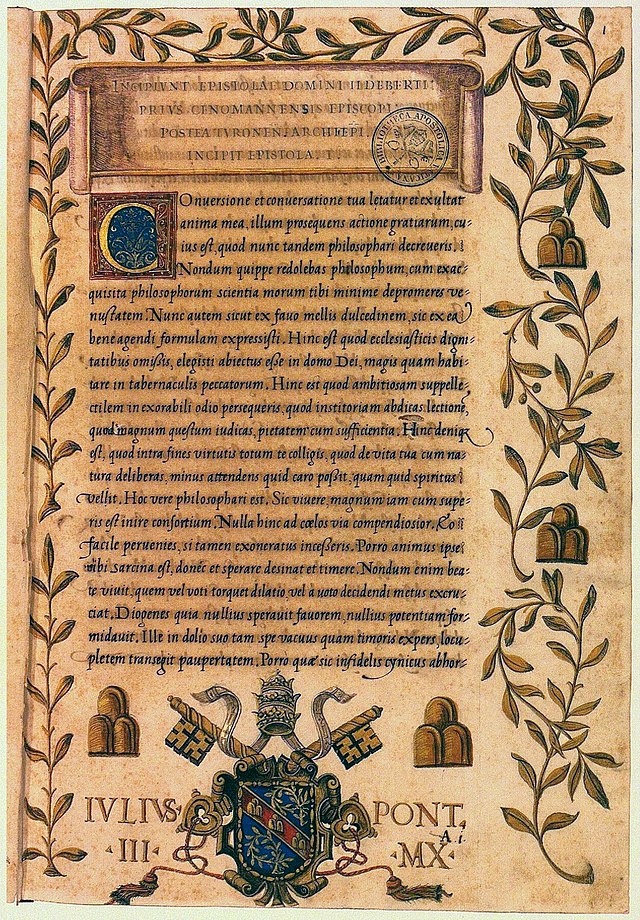 1
INCIPIVNT EPISTOLAE DOMINI ILDEBERTI
PRIVS CENOMANNENSIS EPISCOPI
POSTEA TVRONEN. ARCHIEPI.
INCIPIT EPISTOLA. I.
BIBLIOTHECA APOSTOLICA VATICANA
COnuersione et conuersatione tua letatur et exultat
anima mea, illum prosequens actione gratiarum, cu-
ius est, quod nunc tandem philosophari decreueris.
Nondum quippe redolebas philosophum, cum exac-
quisita philosophorum scientia morum tibi minime depromeres ve-
nustatem. Nunc autem sicut ex fauo mellis dulcedinem, sic ex ea
bene agendi formulam expressisti. Hinc est quod ecclesiasticis digni-
tatibus omissis, elegisti abiectus esse in domo Dei, magis quam habi-
tare in tabernaculis peccatorum. Hinc est quod ambitiosam suppelle-
ctilem inexorabili odio persequeris, quod institoriam abdicas lectione,
quod magnum questum iudicas, pietatem cum sufficientia. Hinc deniq
est, quod intra fines virtutis totum te colligis, quod de vita tua cum na-
tura deliberas, minus attendens quid caro possit, quam quid spiritus
vellit. Hoc vere philosophari est. Sic viuere, magnum iam cum supe-
ris est inire consortium. Nulla hinc ad cœlos via compendiosior. Eo
facile peruenies, si tamen exoneratus incesseris. Porro animus ipse
sibi sarcina est, donec et sperare desinat et timere. Nondum enim bea-
te viuit, quem vel voti torquet dilatio vel a uoto decidendi metus excru-
ciat. Diogenes quia nullius sperauit fauorem, nullius potentiam for-
midauit. Ille in dolio suo tam spe vacuus quam timoris expers, locu-
pletem transegit paupertatem. Porro quæ sic infidelis cynicus abhor-
IVLIVS PONT.
III MX A I.